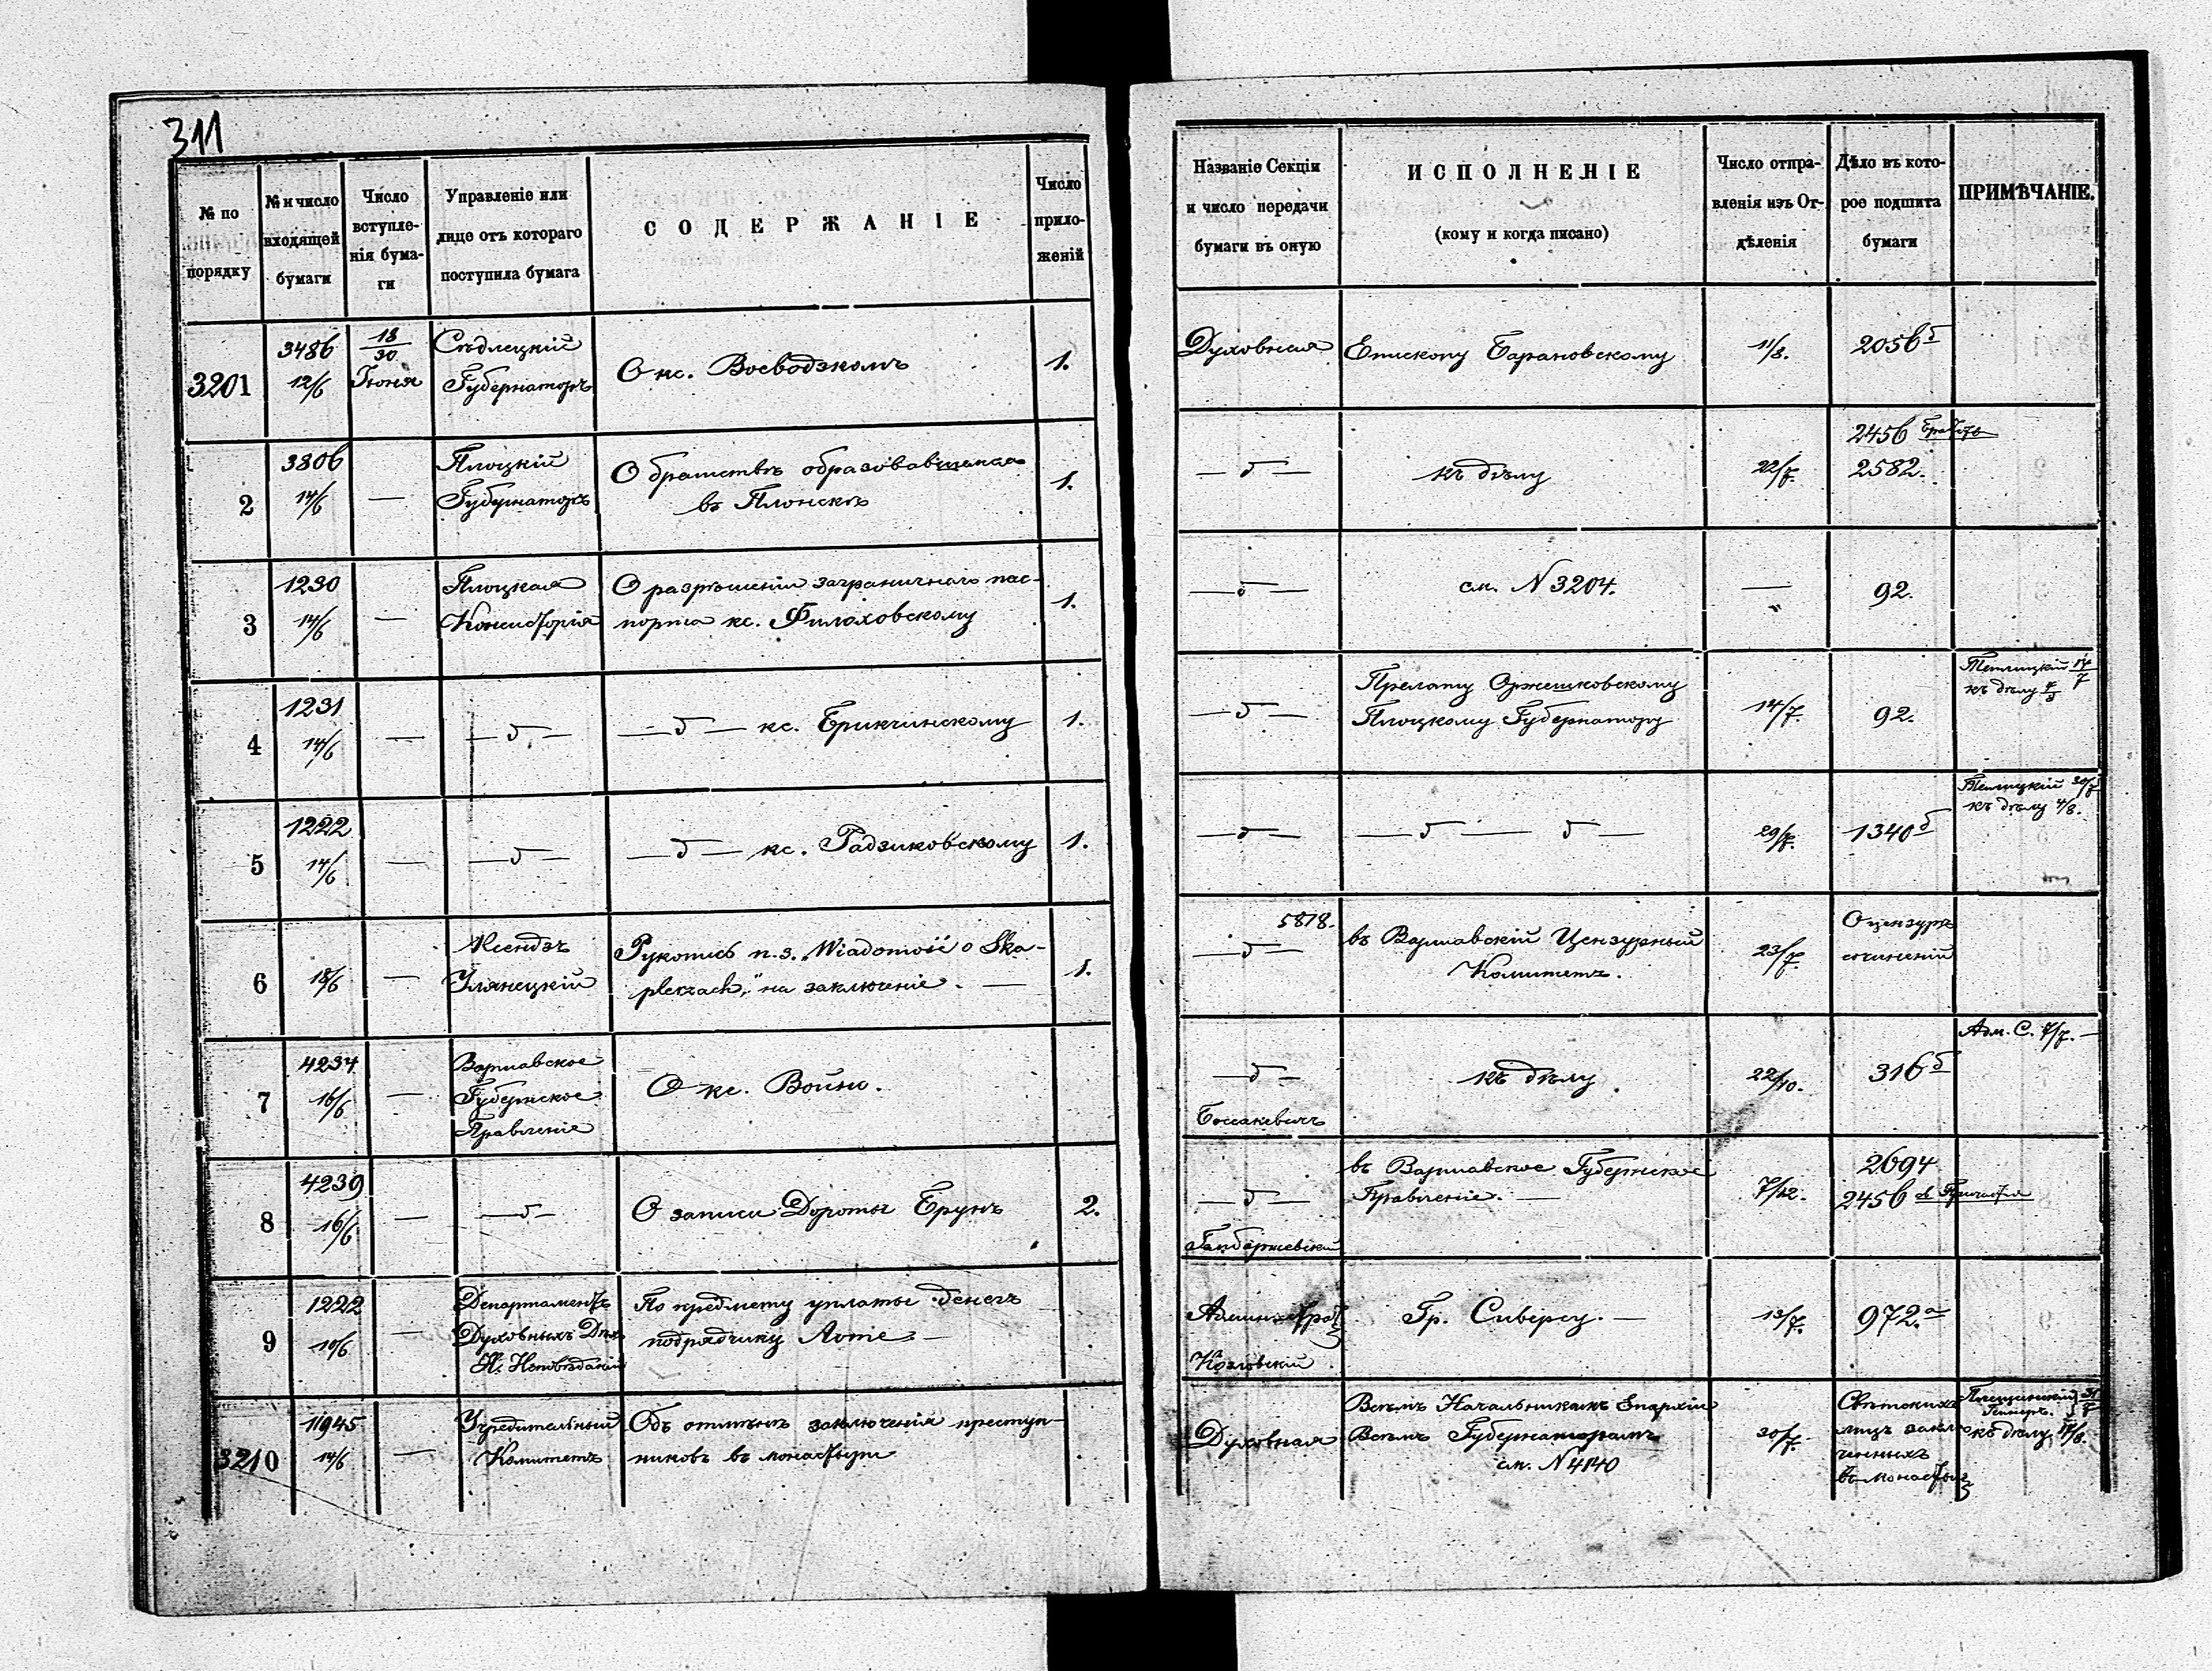 311
№ по порядку
№ и число входящей бумаги
Число вступленія бумаги
Управленіе или лице отъ котораго поступила бумага
СОДЕРЖАНІЕ
Число приложеній
Названіе Секціи и число передачи бумаги въ оную
ИСПОЛНЕНІЕ
(кому и когда писано)
Число отправленія изъ Отдѣленія
Дѣло въ которое подшита бумаги
ПРИМѢЧАНІЕ.
3201
3486
12/6
18/30
Іюня
Сѣдлецкій
Губернаторъ
О кс. Воеводзкомъ
1.
Духовная
Епископу Барановскому
11/8.
2056 б
2
3806
14/6
—
Плоцкій
Губернаторъ
О братствѣ образовавшемся
въ Плонскѣ
1.
— д —
къ дѣлу
22/7.
2456
2582.
3
1230
14/6
—
Плоцкая
Консисторія
О разрѣшеніи заграничнаго пас-
порта кс. Филоховскому
1.
— д —
см. N 3204.
—
92.
4
1231
14/6
—
— д —
— д — кс. Брикчинскому
1.
— д —
Прелату Оржешковскому
Плоцкому Губернатору
14/7.
92.
къ дѣлу
5
1222
14/6
—
— д —
— д — кс. Радзиковскому
1.
— д —
— д — д —
29/7.
1340 б
30/7
къ дѣлу 4/8.
6
18/6
—
Ксендзъ
Улянецкій
Рукопись п. з. „Wiadomość o Ska-
plerzach," на заключеніе. —
1.
5878.
— д —
въ Варшавскій Цензурный
Комитетъ.
23/7.
О цензурѣ
сочиненій
7
4234
16/6
—
Варшавское
Губернское
Правленіе
О кс. Войно.
— д —
къ дѣлу
22/10.
316 б
Адм. С. 7/7. —
8
4239
16/6
—
— д —
О записи Дороты Брунъ
2.
— д —
въ Варшавское Губернское
Правленіе. —
7/12.
2694
2456
9
1222
10/6
—
Департаментъ
Духовныхъ Дѣлъ
И. Исповѣданій
По предмету уплаты денегъ
подрядчику —
Козловскій
Гр. Сиверсу. —
13/7.
972. а
3210
11945
14/6
—
Учредительный
Комитетъ
Объ отмѣнѣ заключенія преступ-
никовъ въ монастыри
Духовная
Всѣмъ Начальникамъ Епархій
Всѣмъ Губернаторамъ
см. N 4140
30/7.
лицъ заклю-
ченныхъ
въ монастыр
къ дѣлу